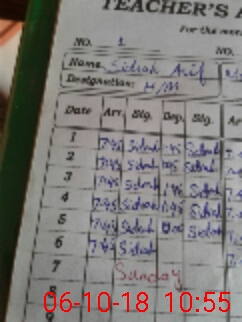 TEACHER'S A
For the mon
NO. 1 NO.
Name Sidrah Arif
Designation: H/M
Date Arr. Sig. Dep. Sig. Ar
1 7:45 Sidrah 1:45 Sidrah
2 7:45 Sidrah Sidrah
3 7:45 Sidrah 1:45 Sidrah
4 7:45 Sidrah 1:45 Sidrah
5 7:45 Sidrah Sidrah
6 7:45 Sidrah
7 Sunday
8
9
06-10-18 10:55